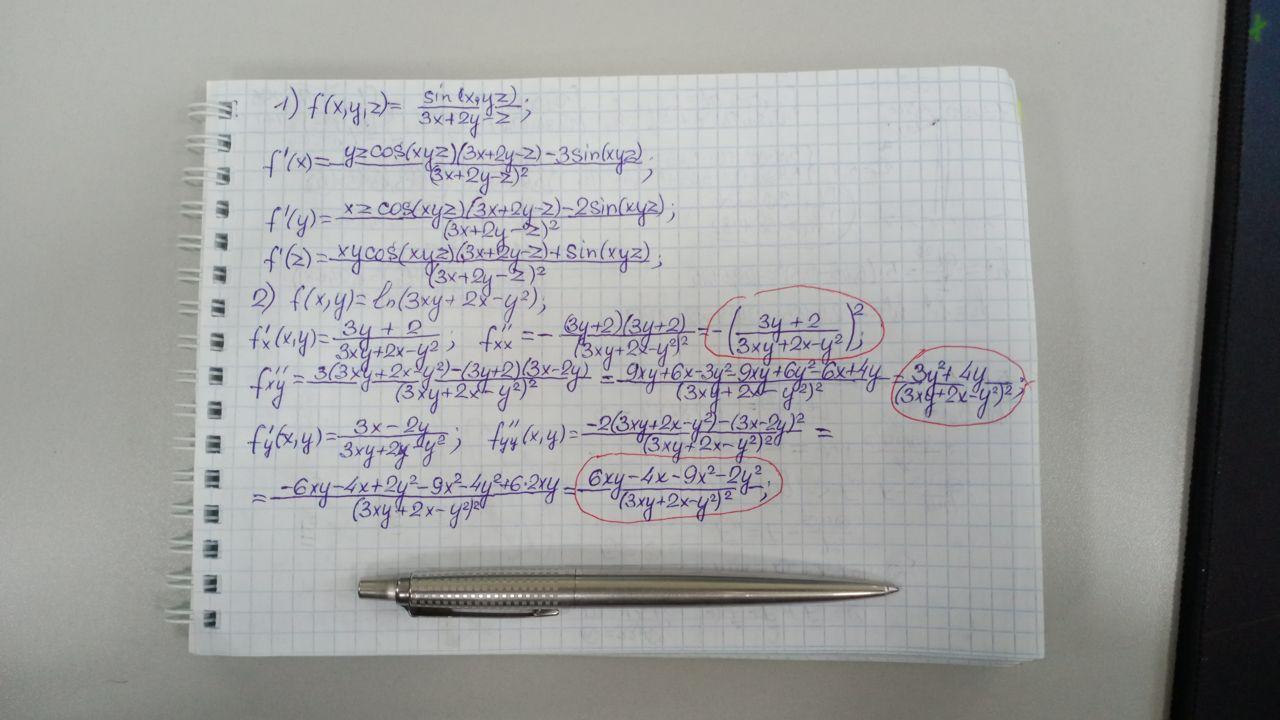 1) f(x,y,z)= sin(x,yz)/3x+2y-z;
f'(x)= yzcos(xyz)(3x+2y-z)-3sin(xyz)/(3x+2y-z)²;
f'(y)= xzcos(xyz)(3x+2y-z)-2sin(xyz)/(3x+2y-z)²;
f'(z)= xycos(xyz)(3x+2y-z)+sin(xyz)/(3x+2y-z)²;
2) f(x,y)=ln(3xy+2x-y²);
f'x(x,y)= 3y+2/3xy+2x-y²; f''xx=- (3y+2)(3y+2)/(3xy+2x-y²)² =-(3y+2/3xy+2x-y²)²;
f''xy= 3(3xy+2x-y²)-(3y+2)(3x-2y)/(3xy+2x-y²)² = 9xy+6x-3y²-9xy+6y²-6x+4y/(3xy+2x-y²)² = 3y²+4y/(3xy+2x-y²)²;
f'y(x,y)= 3x-2y/3xy+2y-y²; f''yy(x,y)= -2(3xy+2x-y²)-(3x-2y)²/(3xy+2x-y²)² =
= -6xy-4x+2y²-9x²-4y²+6·2xy/(3xy+2x-y²)² = 6xy-4x-9x²-2y²/(3xy+2x-y²)²;